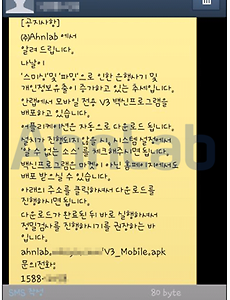 [공지사항]
㈜Ahnlab 에서
알려 드립니다.
나날이
'스미싱'및'파밍'으로 인한 은행사기 및
개인정보유출이 증가하고 있는 추세입니다.
안랩에서 모바일 전용 V3 백신프로그램을
배포하고 있습니다.
어플리케이션은 자동으로 다운로드 됩니다.
설치가 진행되지 않을 시 시스템 설정에서
'알 수 없는 소스' 를 체크해주시면 됩니다.
백신프로그램은 마켓이 아닌 홈페이지에서도
배포 받으실 수 있습니다.
아래의 주소를 클릭하셔서 다운로드를
진행하시면 됩니다.
다운로드가 완료된 뒤 바로 실행하셔서
정밀검사를 진행하시기를 권장하는 바
입니다.
ahnlab. /V3_Mobile.apk
문의전화:
1588-
80 byte
AhnLab